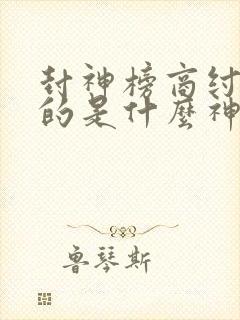 封神榜商纣
的是什麼神
魯琴斯